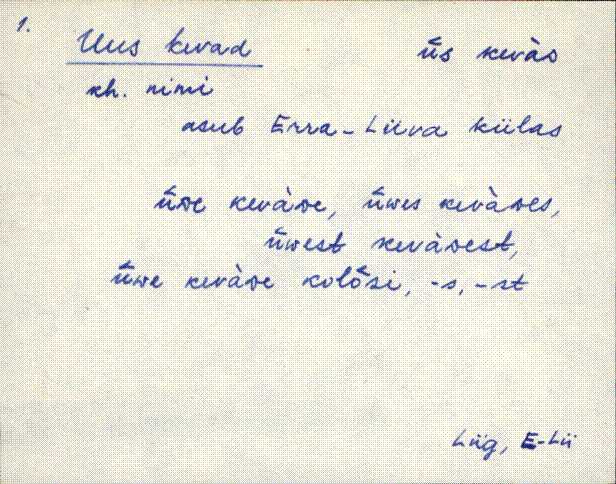 1.
Uus kevad ūs kevàs
kh. nimi
asub Erra-Liiva külas
ūwe kevàwe, ūwes kevàwes,
ūwest kevàwest,
ūwe kevàwe kolōsi, -s, -st
Lüg, E-Lii